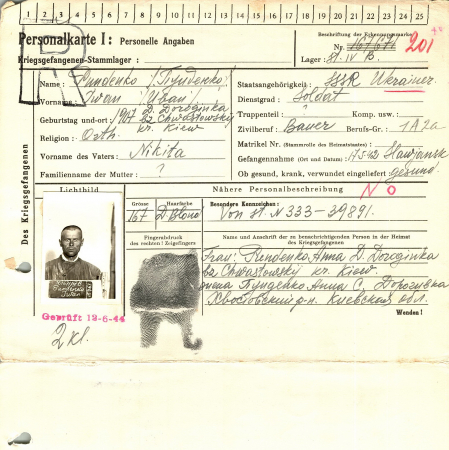 1 2 3 4 5 6 7 8 9 10 11 12 13 14 15 16 17 18 19 20 21 22 23 24 25
Personalkarte I: Personelle Angaben
Beschriftung der Erkennungsmarke
Nr. 167671 201
Kriegsgefangenen-Stammlager:
Lager: St. IV B.
Des Kriegsgefangenen
Name: Pundenko /Пунденко/
Vorname: Iwan /Иван/
Geburtstag und -ort: 1907 D. Doroginka
bz Chwastowsky
kr. Kiew
Religion: Orth.
Vorname des Vaters: Nikita
Familienname der Mutter: ?
Staatsangehörigkeit: SSR Ukrainer
Dienstgrad: Soldat
Truppenteil: Komp. usw.:
Zivilberuf: Bauer Berufs-Gr. 1A2a
Matrikel Nr. (Stammrolle des Heimatstaates)
Gefangennahme (Ort und Datum): 17.5.42 Slawjansk
Ob gesund, krank, verwundet eingeliefert: gesund.
Lichtbild
Nähere Personalbeschreibung
No
Grösse Haarfarbe Besondere Kennzeichen:
167 D Blond Von St. N 333-39891.
Fingerabdruck
des rechten! Zeigefingers
Name und Anschrift der zu benachrichtigenden Person in der Heimat
des Kriegsgefangenen
Frau: Pundenko Anna D. Doroginka
bz Chwastowsky kr. Kiew
жена Пунденко Анна С. Дорогинка
Киевская обл.
Geprüft 12-6-44
2 kl.
Wenden!